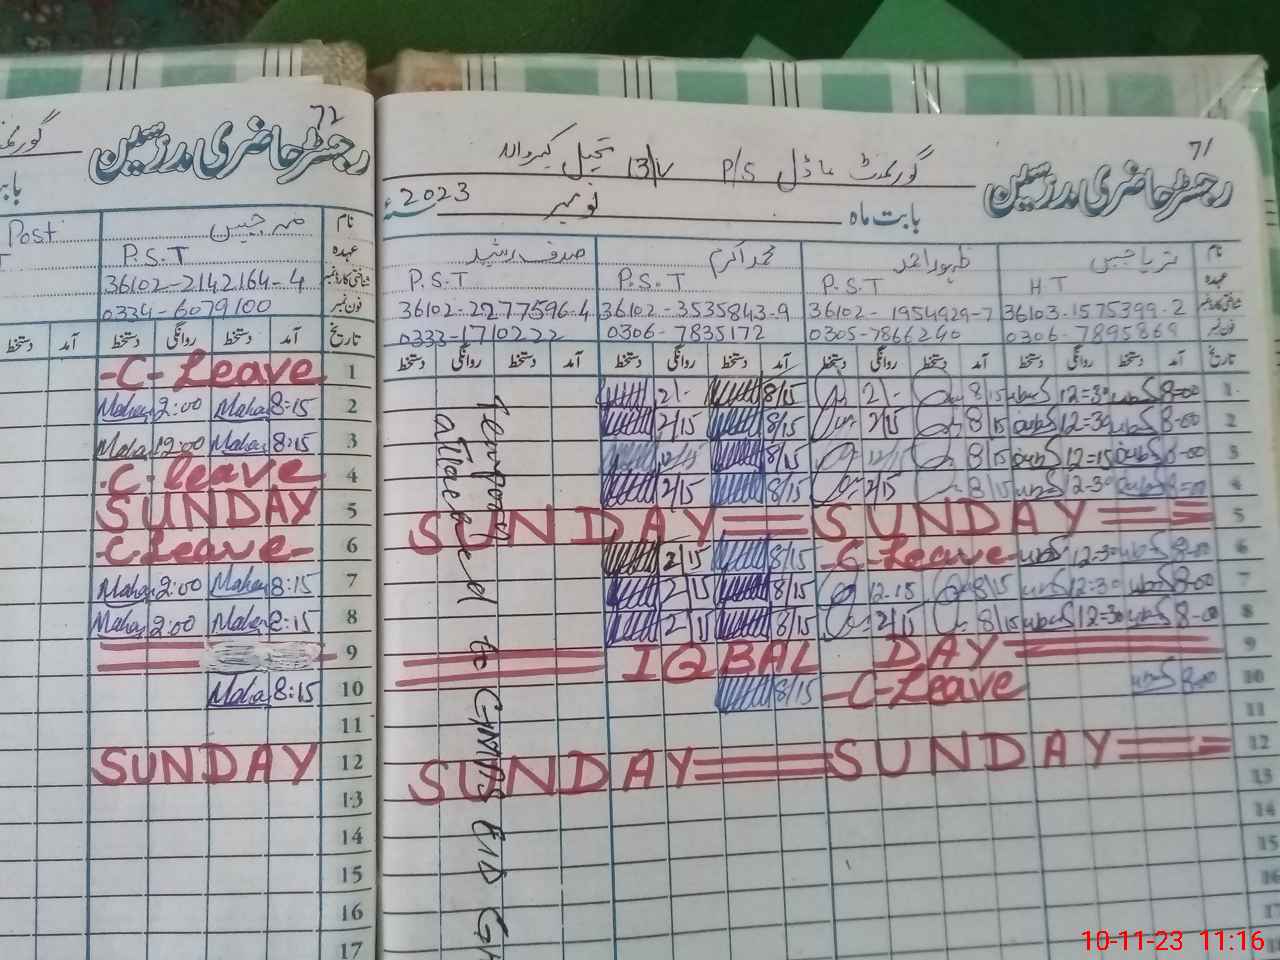 72
رجسٹر حاضری مدرسین
گورنمنٹ
نام
مہ جبیں
Post
عہدہ
P.S.T
شناختی کارڈ نمبر
36102-2142164-4
فون نمبر
0334-6079100
تاریخ آمد دستخط روانگی دستخط آمد دستخط
1 -C-Leave
2 8:15 Maha 2:00 Maha
3 8:15 Maha 12:00 Maha
4 -C-leave
5 SUNDAY
6 -C-Leave-
7 8:15 Maha 2:00 Maha
8 8:15 Maha 2:00 Maha
9
10 8:15 Maha
11
12 SUNDAY
13
14
15
16
17
71
رجسٹر حاضری مدرسین
گورنمنٹ ماڈل P/S 13/V تحصیل کہروالہ
بابت ماہ نومبر 2023
نام ثریا جبیں ظہور احمد محمد اکرم صدف رشید
عہدہ H.T P.S.T P.S.T P.S.T
شناختی کارڈ نمبر 36103-1575399-2 36102-1954929-7 36102-3535843-9 36102-2277596-4
فون نمبر 0306-7895869 0305-7866240 0306-7835172 0333-1710222
تاریخ آمد دستخط روانگی دستخط آمد دستخط روانگی دستخط آمد دستخط روانگی دستخط آمد دستخط روانگی دستخط
1 8-00 12=30 8/15 2/- 8/15 2/-
2 8-00 12=30 8/15 2/15 8/15 2/15
3 8-00 12=15 8/15 12/15 8/15 12/15
4 8=00 12-30 8/15 2/15 8/15 2/15
5 SUNDAY SUNDAY
6 8-00 12=30 -C-Leave- 8/15 2/15
7 8-00 12=30 8/15 12-15 8/15 2/15
8 8-00 12=30 8/15 2/15 8/15 2/15
9 IQBAL DAY
10 8-00 -C-Leave 8/15
11
12 SUNDAY SUNDAY
13
14
15
16
Temporary
attached to GMPS EID GH
10-11-23 11:16